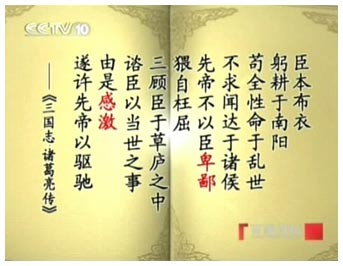 CCTV 10
臣本布衣
躬耕于南阳
苟全性命于乱世
不求闻达于诸侯
先帝不以臣卑鄙
猥自枉屈
三顾臣于草庐之中
谘臣以当世之事
由是感激
遂许先帝以驱驰
——《三国志 诸葛亮传》